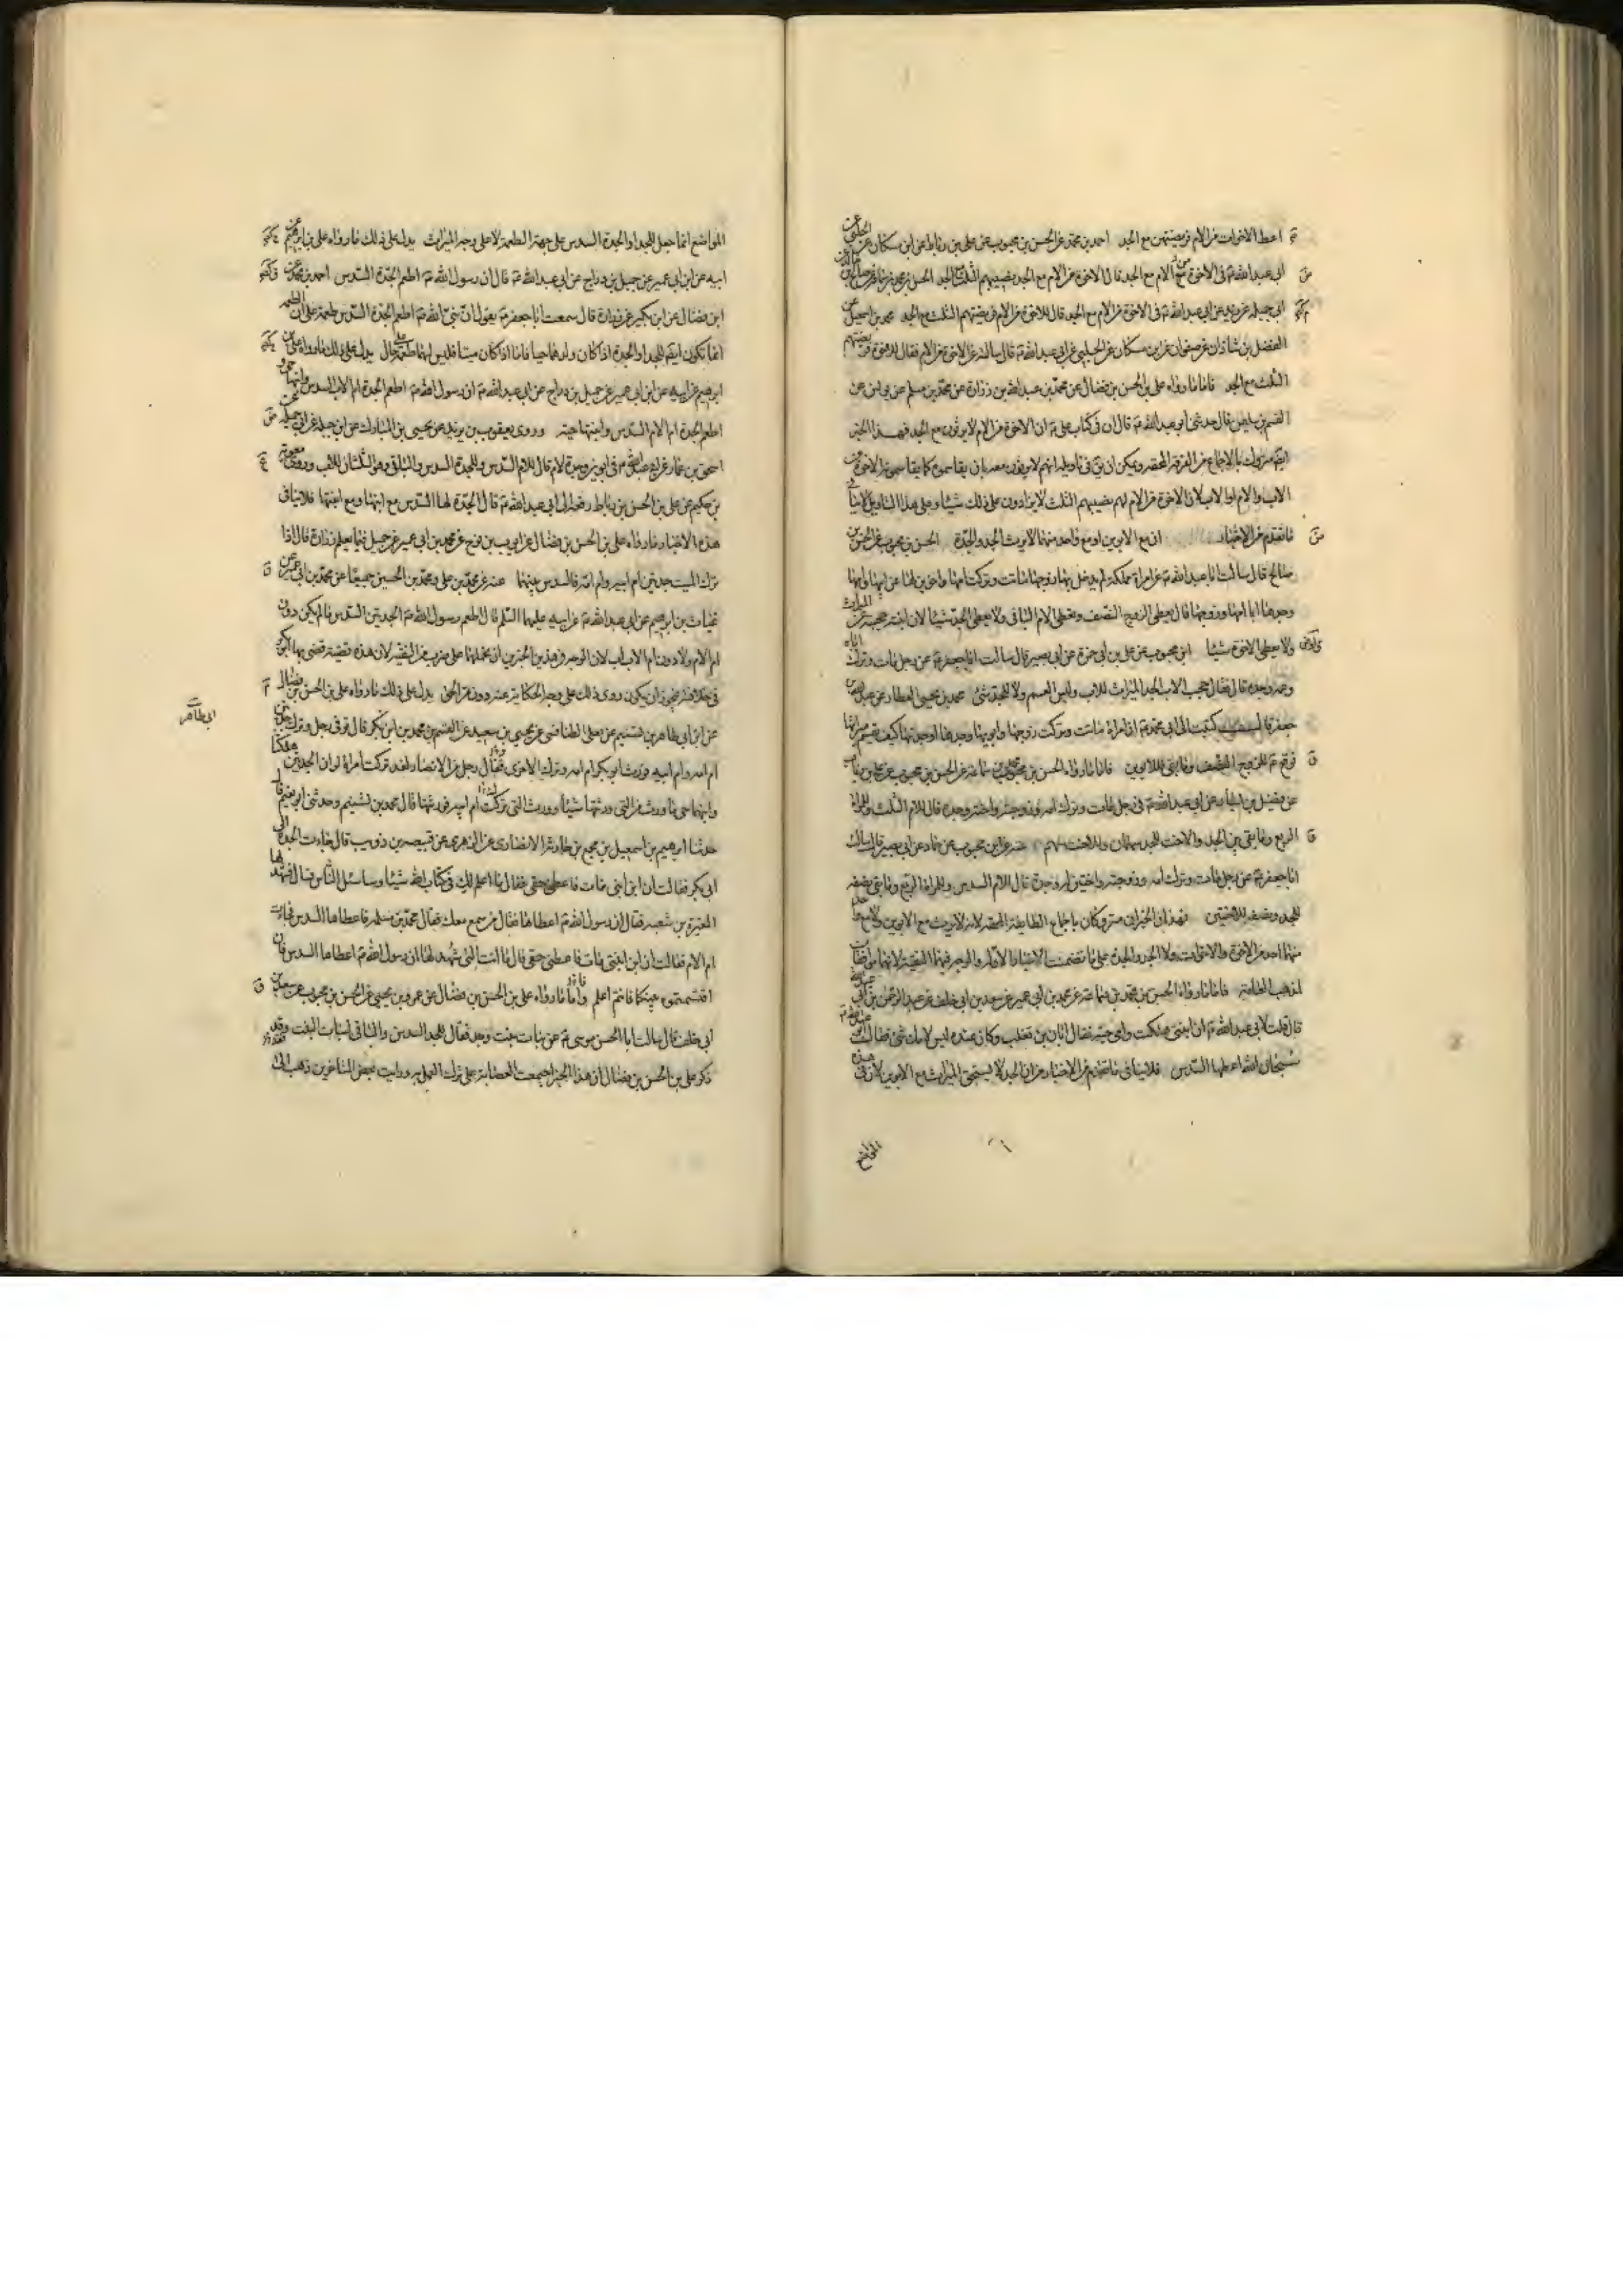 اعط الاخوات من الام فريضتهن مع الجد احمد بن محمد عن الحسن بن محبوب عن علی بن رباط عن ابن مسکان عن الحلبی عن
ابی عبدالله ع فی الاخوة من الام مع الجد قال الاخوة من الام مع الجد نصیبهم الثلث مع الجد الحسن بن محبوب عن
ابی جمیلة عن زید عن ابی عبدالله ع فی الاخوة من الام مع الجد قال للاخوة من الام فریضتهم الثلث مع الجد محمد بن اسمعیل عن
الفضل بن شاذان عن صفوان عن ابن مسکان عن الحلبی عن ابی عبدالله ع قال سالته عن الاخوة من الام فقال للاخوة فریضتهم
الثلث مع الجد فاما ما رواه علی بن الحسن بن فضال عن محمد بن عبدالله بن زرارة عن محمد بن مسلم عن یونس عن
القسم بن سلیمن قال حدثنی ابو عبدالله ع قال ان فی کتاب علی ع ان الاخوة من الام لا یرثون مع الجد فهذا الخبر
ایضا متروک بالاجماع من الفرقة المحقة ویمکن ان یق فی تاویله انهم لا یرثون معه بان یقاسموه کما یقاسمونه الاخوة من
الاب والام او الاب لان الاخوة من الام لهم نصیبهم الثلث لا یزادون علی ذلک شیئا وعلی هذا التاویل لا ینافی
ما تقدم من الاخبار ان مع الابوین او مع واحد منهما لا یرث الجد والجدة الحسن بن محبوب عن الحسن بن
صالح قال سالت ابا عبدالله ع عن امراة مملکة لم یدخل بها زوجها ماتت وترکت امها واخوین لها من ابیها وامها
وجدها ابا امها وزوجها قال یعطی الزوج النصف وتعطی الام الباقی ولا یعطی الجد شیئا لان ابنته حجبته عن المیراث
ولا یعطی الاخوة شیئا ابن محبوب عن علی بن ابی حمزة عن ابی بصیر قال سالت ابا جعفر ع عن رجل مات وترک اباه
وعمه وجده قال فقال حجب الاب الجد المیراث للاب ولیس للعم ولا للجد شئ محمد بن یحیی العطار عن عبدالله بن
جعفر قال کتبت الی ابی محمد ع ان امراة ماتت وترکت زوجها وابویها وجدها او جدتها کیف یقسم میراثها
فوقع ع للزوج النصف وما بقی للابوین فاما ما رواه الحسن بن محمد بن سماعة عن الحسن بن محبوب عن علی بن رئاب
عن فضیل بن یسار عن ابی عبدالله ع فی رجل مات وترک امه وزوجته واخته وجده قال للام الثلث وللمراة
الربع وما بقی بین الجد والاخت للجد سهمان وللاخت سهم عنه عن ابن محبوب عن حماد عن ابی بصیر قال سالت
ابا جعفر ع عن رجل مات وترک امه وزوجته واختین له وجده قال للام السدس وللمراة الربع وما بقی نصفه
للجد ونصفه للاختین فهذان الخبران متروکان باجماع الطایفة المحقة لانه لا یرث مع الابوین ولا مع احد
منهما احد من الاخوة والاخوات ولا الجد والجدة علی ما تضمنت الاخبار الاولة والوجه فیهما التقیة لانهما موافقان
لمذهب العامة فاما ما رواه الحسن بن محمد بن سماعة عن محمد بن ابی عمیر عن سعد بن ابی خلف عن عبدالرحمن بن ابی عبدالله
قال قلت لابی عبدالله ع ان ابنتی هلکت وامی حیة فقال ابان بن تغلب وکان عنده لیس لامک شئ فقال ابو عبدالله ع
سبحان الله اعطها السدس فلا ینافی ما تقدم من الاخبار من ان الجد لا یستحق المیراث مع الابوین لان فی هذه
المواضع
المواضع انما جعل للجد او الجدة السدس علی جهة الطعمة لا علی وجه المیراث یدل علی ذلک ما رواه علی بن ابرهیم عن
ابیه عن ابن ابی عمیر عن جمیل بن دراج عن ابی عبدالله ع قال ان رسول الله ص اطعم الجدة السدس احمد بن محمد عن
ابن فضال عن ابن بکیر عن زرارة قال سمعت ابا جعفر ع یقول ان نبی الله ص اطعم الجدة السدس طعمة علی ان الطعمة
انما تکون ایضا للجد او الجدة اذا کان ولدهما حیا فاما اذا کان میتا فلیس لهما طعمة علی حال یدل علی ذلک ما رواه علی بن
ابرهیم عن ابیه عن ابن ابی عمیر عن جمیل بن دراج عن ابی عبدالله ع ان رسول الله ص اطعم الجدة ام الاب السدس وابنها حی
اطعم الجدة ام الام السدس وابنتها حیة وروی یعقوب بن یزید عن یحیی بن المبارک عن ابن جبلة عن ابی جمیلة عن
اسحق بن عمار عن ابی عبدالله ع فی ابوین وجدة لام قال للام السدس وللجدة السدس والباقی وهو الثلثان للاب وروی معویة
بن حکیم عن علی بن الحسن بن رباط رفعه الی ابی عبدالله ع قال الجدة لها السدس مع ابنها ومع ابنتها فلا ینافی
هذه الاخبار ما رواه علی بن الحسن بن فضال عن ایوب بن نوح عن محمد بن ابی عمیر عن جمیل فیما یعلم زرارة قال اذا
ترک المیت جدتین ام ابیه وام امه فالسدس بینهما عنه عن محمد بن علی ومحمد بن الحسین جمیعا عن محمد بن ابی عمیر عن
غیاث بن ابرهیم عن ابی عبدالله ع عن ابیه علیهما السلم قال اطعم رسول الله ص الجدتین السدس ما لم یکن دون
ام الام ولا دون ام الاب اب لان الوجه فی هذین الخبرین ان نحملهما علی ضرب من التقیة لان هذه قضیة قضی بها ابو بکر
فی خلافته فیجوز ان یکون روی ذلک علی وجه الحکایة عنه دون مر الحق یدل علی ذلک ما رواه علی بن الحسن بن فضال
عن ابی طاهر بن تسنیم عن علی الطنافسی عن یحیی بن سعید عن القسم بن محمد بن ابی بکر قال توفی رجل وترک جدتین
ام امه وام ابیه فورث ابو بکر ام امه وترک الاخری فقال رجل من الانصار لقد ترکت امراة لو ان الجدتین هلکتا
وابنهما حی ما ورث من التی ورثتها شیئا وورث التی ترکت ام ابیه فورثها قال محمد بن تسنیم وحدثنی ابو نعیم قال
حدثنا ابرهیم بن اسمعیل بن مجمع بن حارثة الانصاری عن الزهری عن قبیصة بن ذویب قال جاءت الجدة الی
ابی بکر فقالت ان ابن ابنی مات فاعطنی حقی فقال ما اعلم لک فی کتاب الله شیئا وساسئل الناس فسال فشهد لها
المغیرة بن شعبة فقال ان رسول الله ص اعطاها فقال من سمع معک فقال محمد بن مسلمة فاعطاها السدس فجاءت
ام الام فقالت ان ابن ابنتی مات فاعطنی حقی قال ما انت التی شهد لها ان رسول الله ص اعطاها السدس فان
اقتسمتموه بینکما فانتم اعلم فاما ما رواه علی بن الحسن بن فضال عن عمرو بن یحیی عن الحسن بن محبوب عن سعد بن
ابی خلف قال سالت ابا الحسن موسی ع عن بنات بنت وجد فقال للجد السدس والباقی لبنات البنت وقد
ذکر علی بن الحسن بن فضال ان هذا الخبر اجمعت العصابة علی ترک العمل به ورایت بعض المتاخرین ذهب الی
ابی طاهر